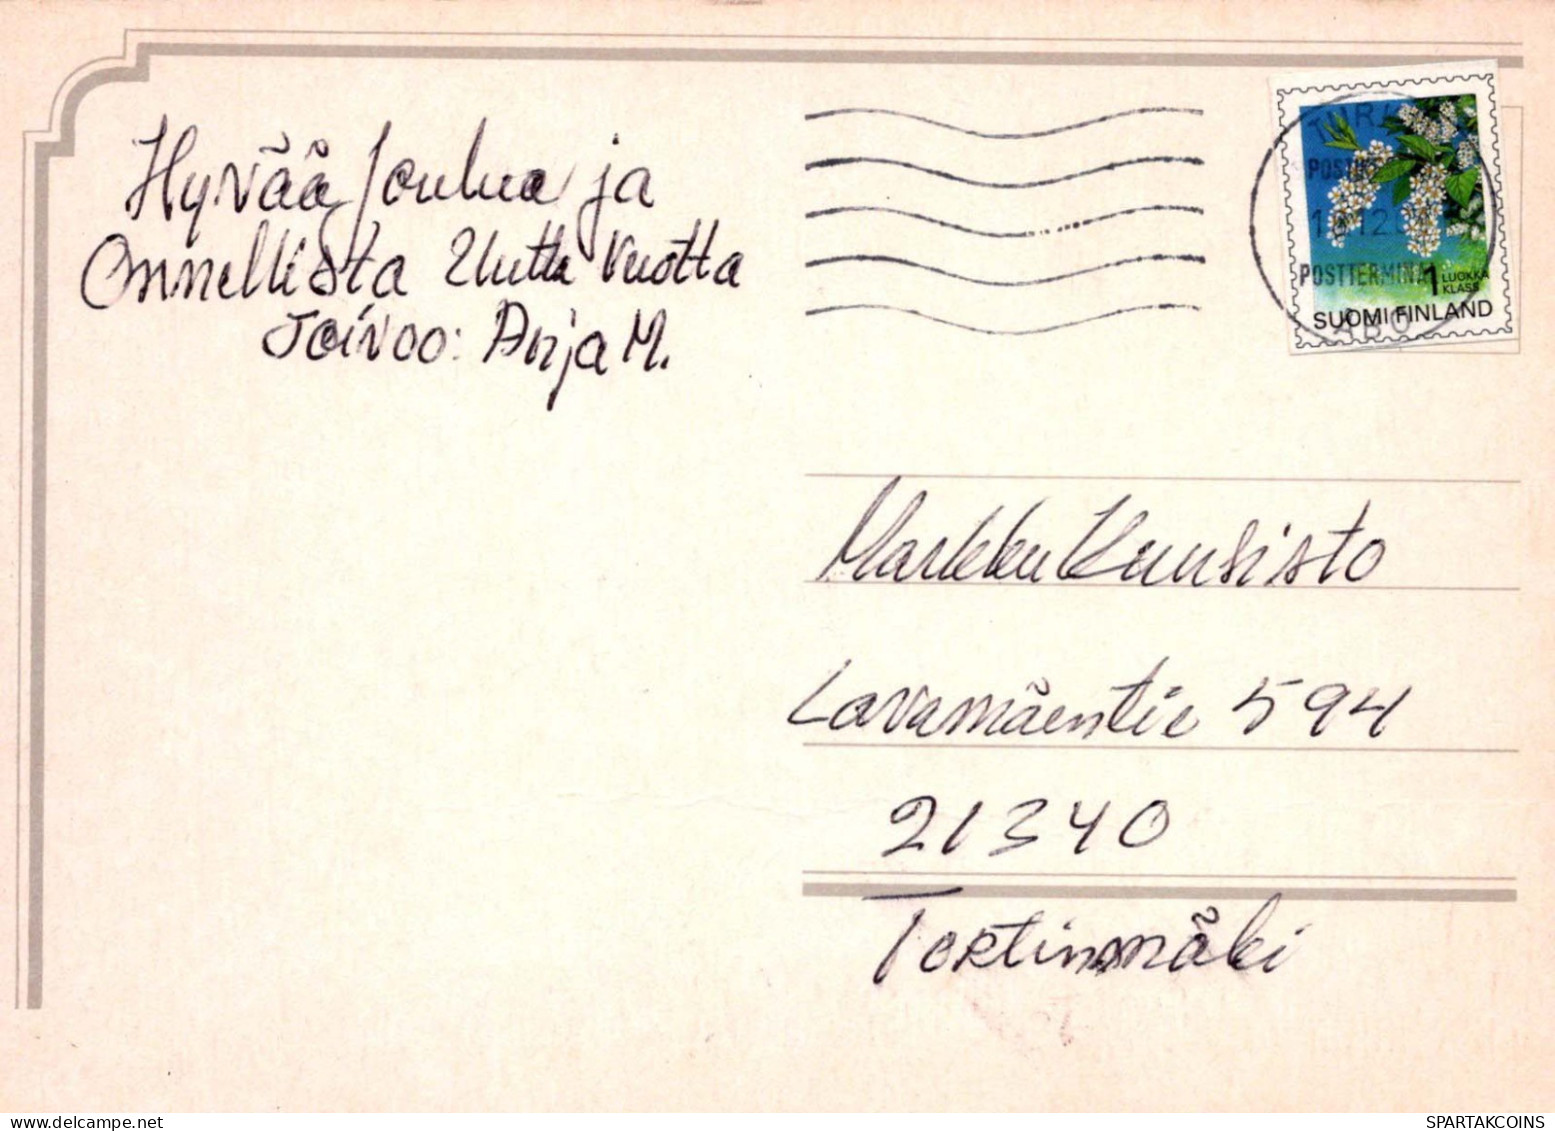 Hyvää Joulua ja
Onnellista Uutta Vuotta
Toivoo: Anja M.
TURKU
1 LUOKKA
KLASS
POSTTERMINAL
SUOMI FINLAND
ÅBO
Markku Kuusisto
Lavamäentie 594
21340
Tortinmäki
www.delcampe.net
SPARTAKCOINS